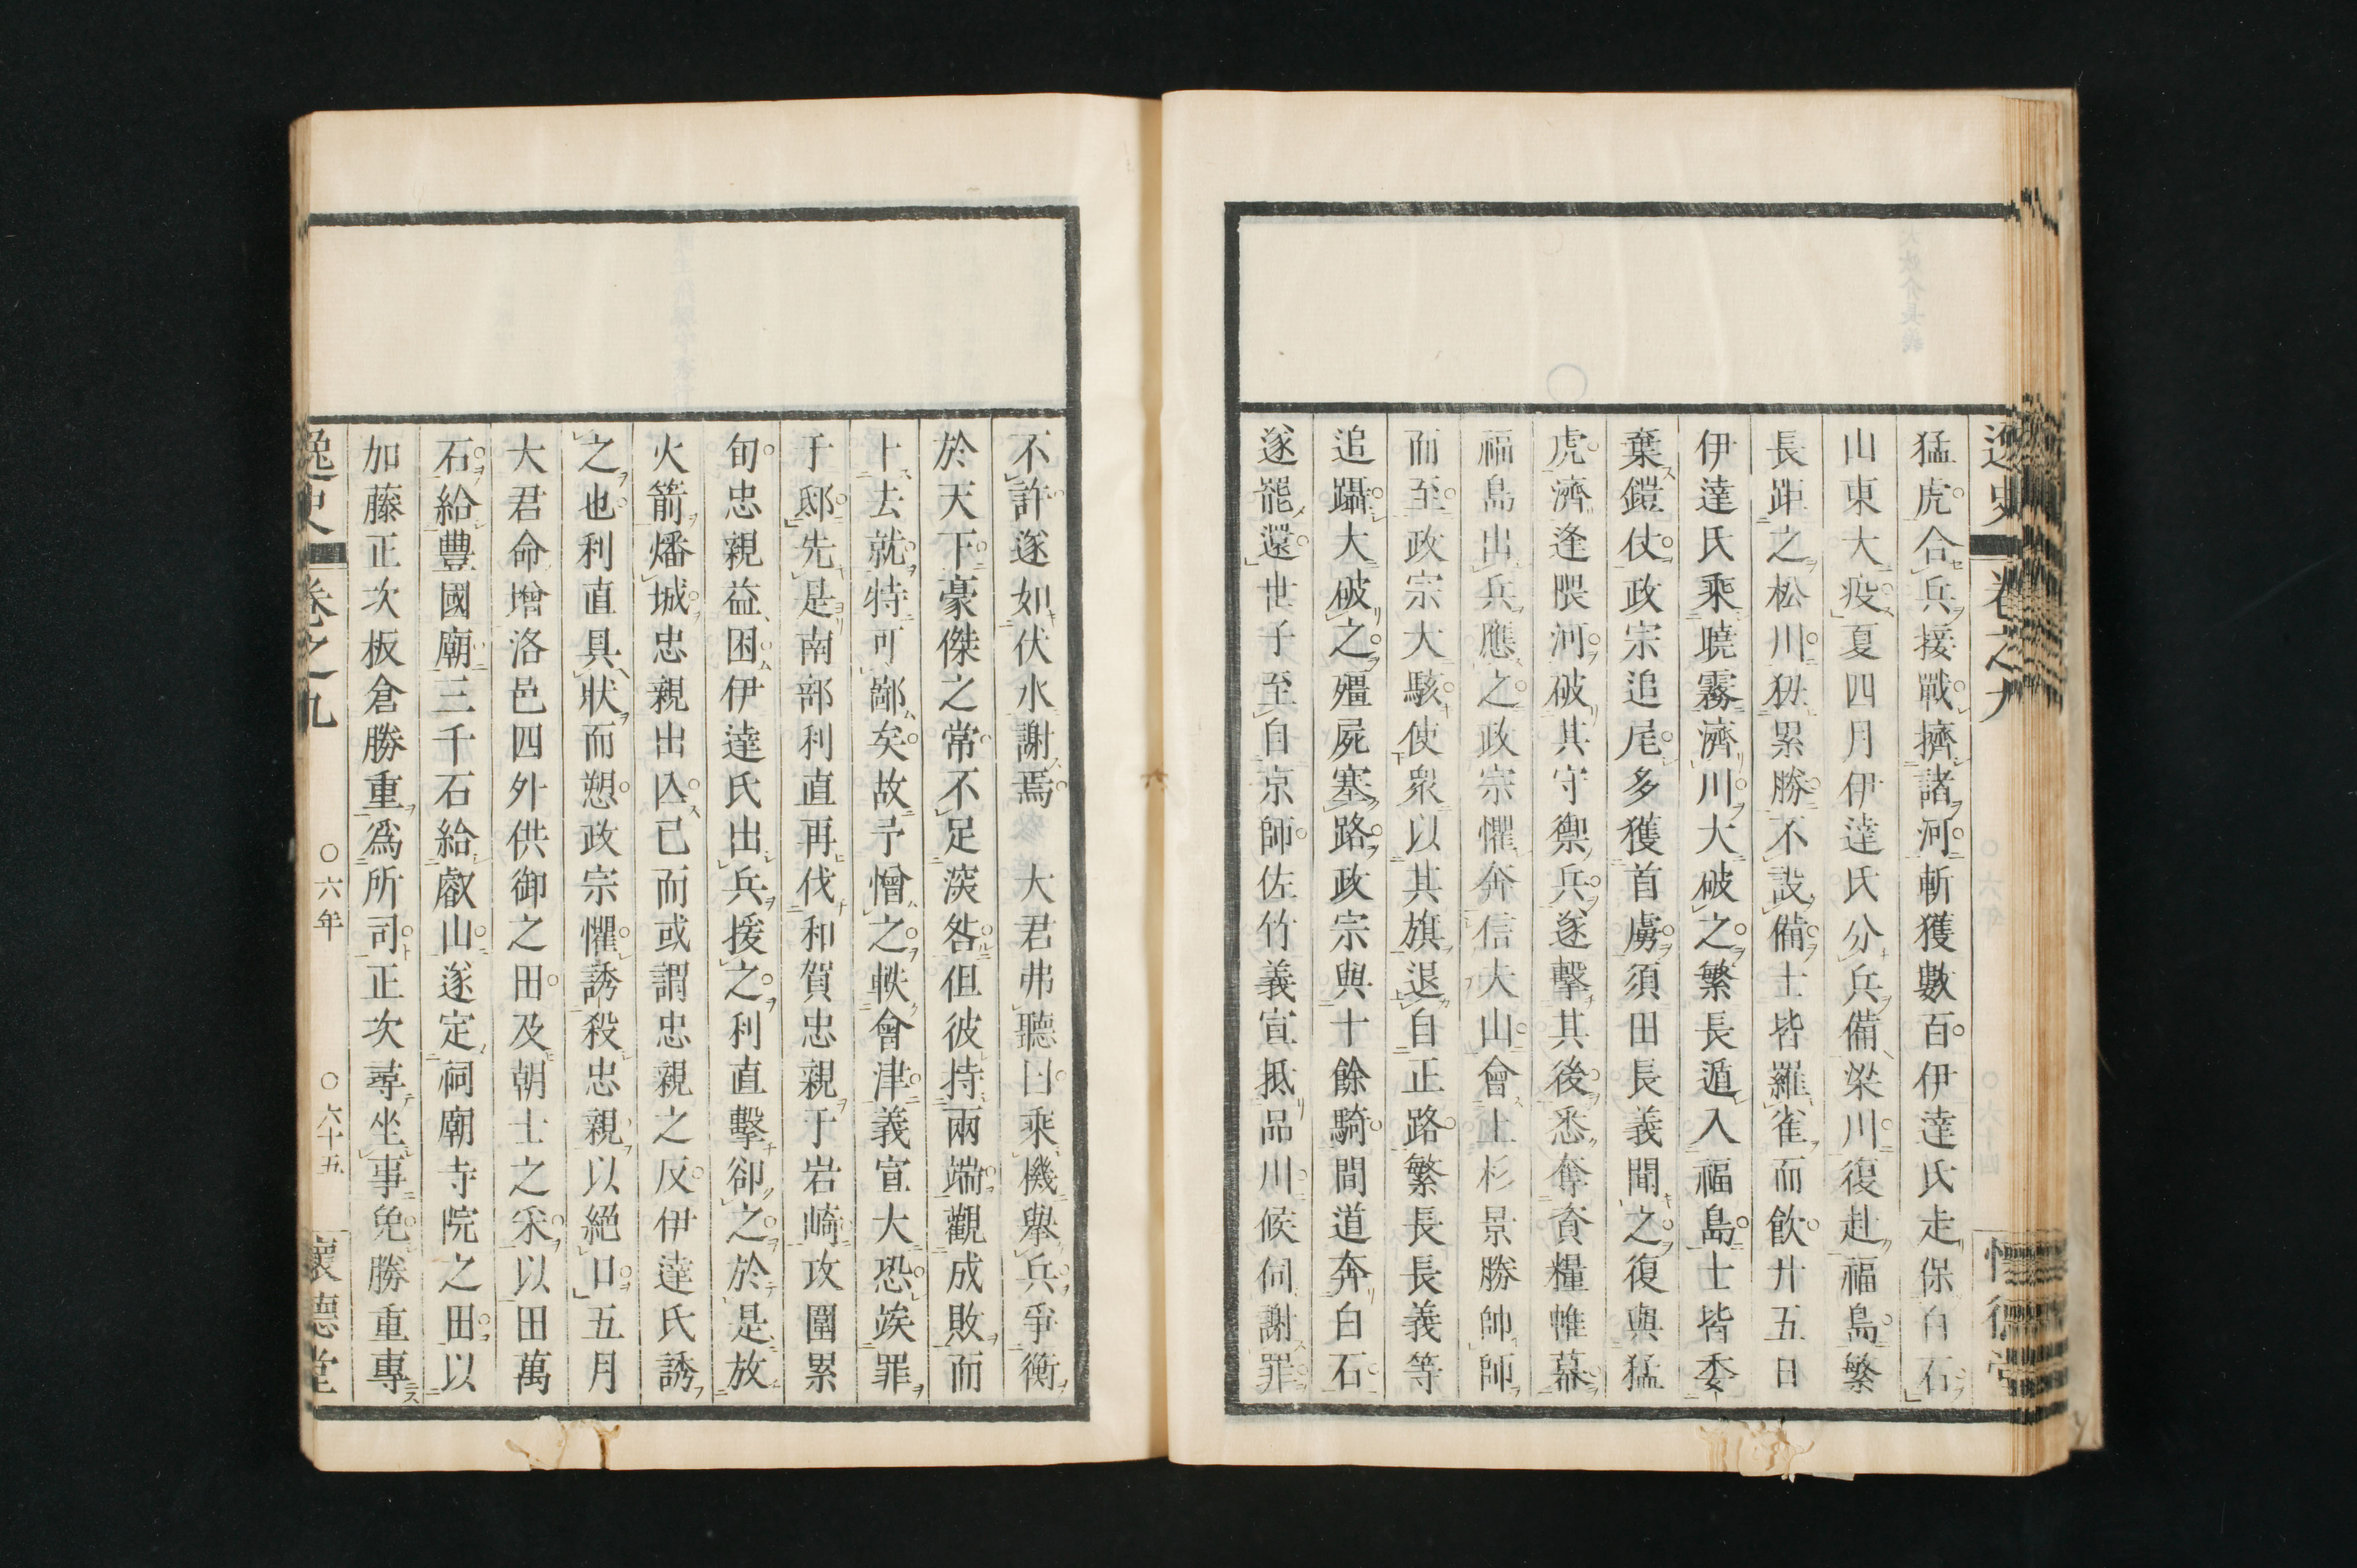 逸史 卷之九 懷德堂
猛虎合兵接戰擠諸河斬獲數百伊達氏走保白石
山東大疫夏四月伊達氏分兵備梁川復赴福島繁
長距之松川狃累勝不設備士皆羅雀而飲廿五日
伊達氏乘曉霧濟川大破之繁長遁入福島士皆委
棄鎧仗政宗追尾多獲首虜須田長義聞之復與猛
虎濟逢隈河破其守禦兵遂擊其後悉奪資糧帷幕
福島出兵應之政宗懼奔信夫山會上杉景勝帥師
而至政宗大駭使衆以其旗退自正路繁長長義等
追躡大破之殭屍塞路政宗與十餘騎間道奔白石
遂罷還世子至自京師佐竹義宣抵品川候伺謝罪
不許遂如伏水謝焉 大君弗聽曰乘機舉兵爭衡
於天下豪傑之常不足深咎但彼持兩端觀成敗而
十去就特可鄙矣故予憎之軼會津義宣大恐竢罪
于邸先是南部利直再伐和賀忠親于岩崎攻圍累
旬忠親益困伊達氏出兵援之利直擊卻之於是放
火箭燔城忠親出囚已而或謂忠親之反伊達氏誘
之也利直具狀而愬政宗懼誘殺忠親以絕口五月
大君命增洛邑四外供御之田及朝士之釆以田萬
石給豐國廟三千石給叡山遂定祠廟寺院之田以
加藤正次板倉勝重爲所司正次尋坐事免勝重專
逸史 卷之九 ○六年 ○六十五 懷德堂